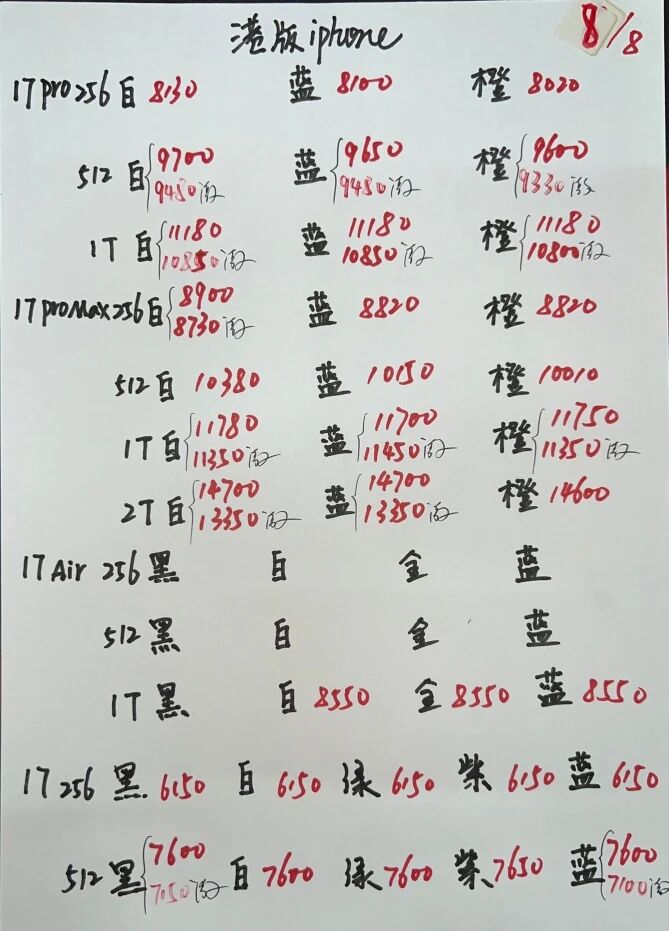 港版iphone 8/8
17pro256白8130 蓝8100 橙8020
512白9700 蓝9650 橙9600
9480激 9480激 9330激
1T白11180 蓝11180 橙11180
10850激 10850激 10800激
17proMax256白8900 蓝8820 橙8820
8730激
512白10380 蓝10150 橙10010
1T白11780 蓝11700 橙11750
11350激 11450激 11350激
2T白14700 蓝14700 橙14600
13350激 13350激
17Air 256黑 白 金 蓝
512黑 白 金 蓝
1T黑 白8550 金8550 蓝8550
17 256 黑6150 白6150 绿6150 紫6150 蓝6150
512黑7600 白7600 绿7600 紫7650 蓝7600
7050激 7100激